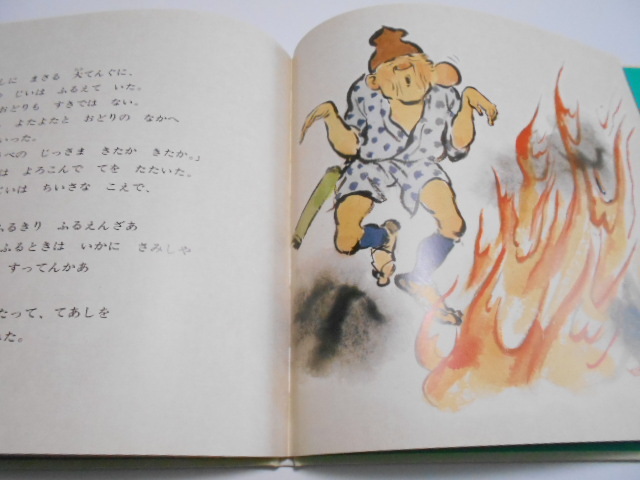 しに まさる 大てんぐに、
じいは ふるえて いた。
おどりも すきでは ない。
よたよたと おどりの なかへ
いった。
べの じっさま きたか きたか。」
は よろこんで てを たたいた。
じいは ちいさな こえで、
ふるきり ふるえんざあ
ふるときは いかに さみしゃ
すってんかあ
たって、てあしを
た。